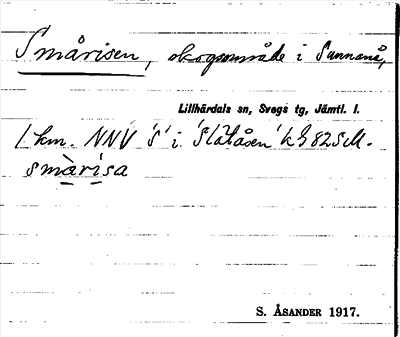 Smårisen, skogsområde i Sannanå,
Lillhärdals sn, Svegs tg, Jämtl. l.
1 km. NNV 'S' i 'Slåtåsen' k § 82 S M.
smàrisa
S. ÅSANDER 1917.